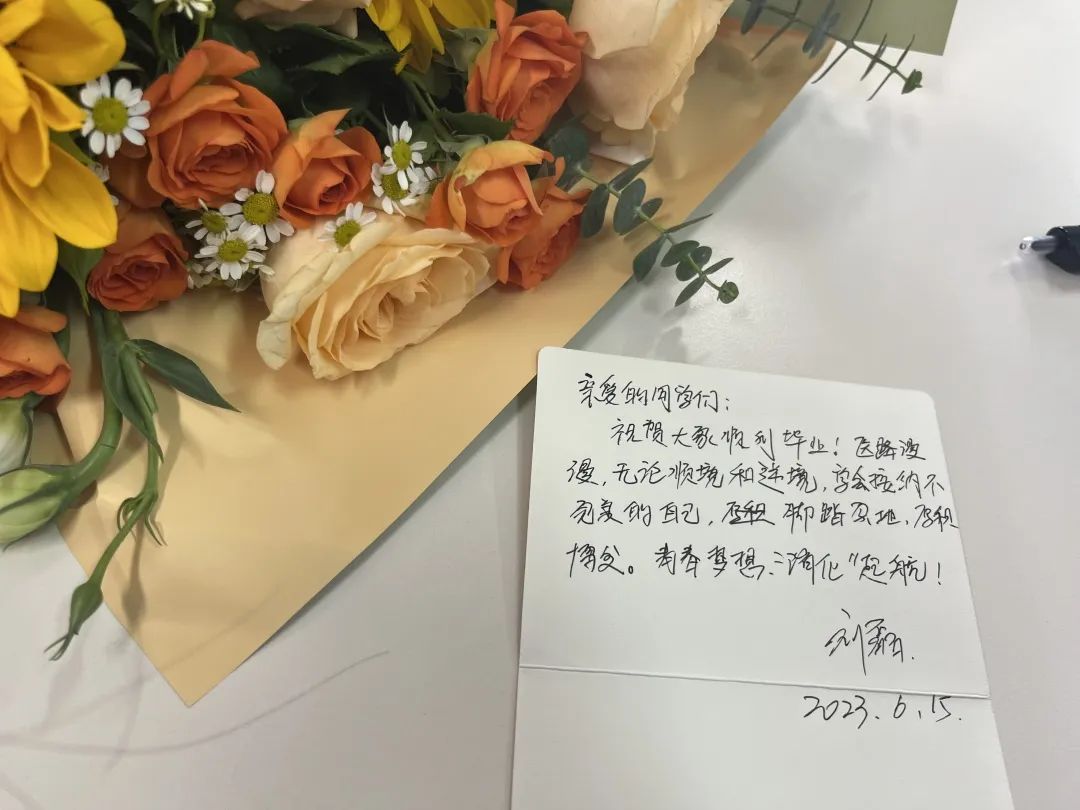 亲爱的同学们：
祝贺大家顺利毕业！医路漫
漫，无论顺境和逆境，学会接纳不
完美的自己，脚踏实地，厚积
博发。青春梦想，"消化"起航！
刘
2023.6.15.